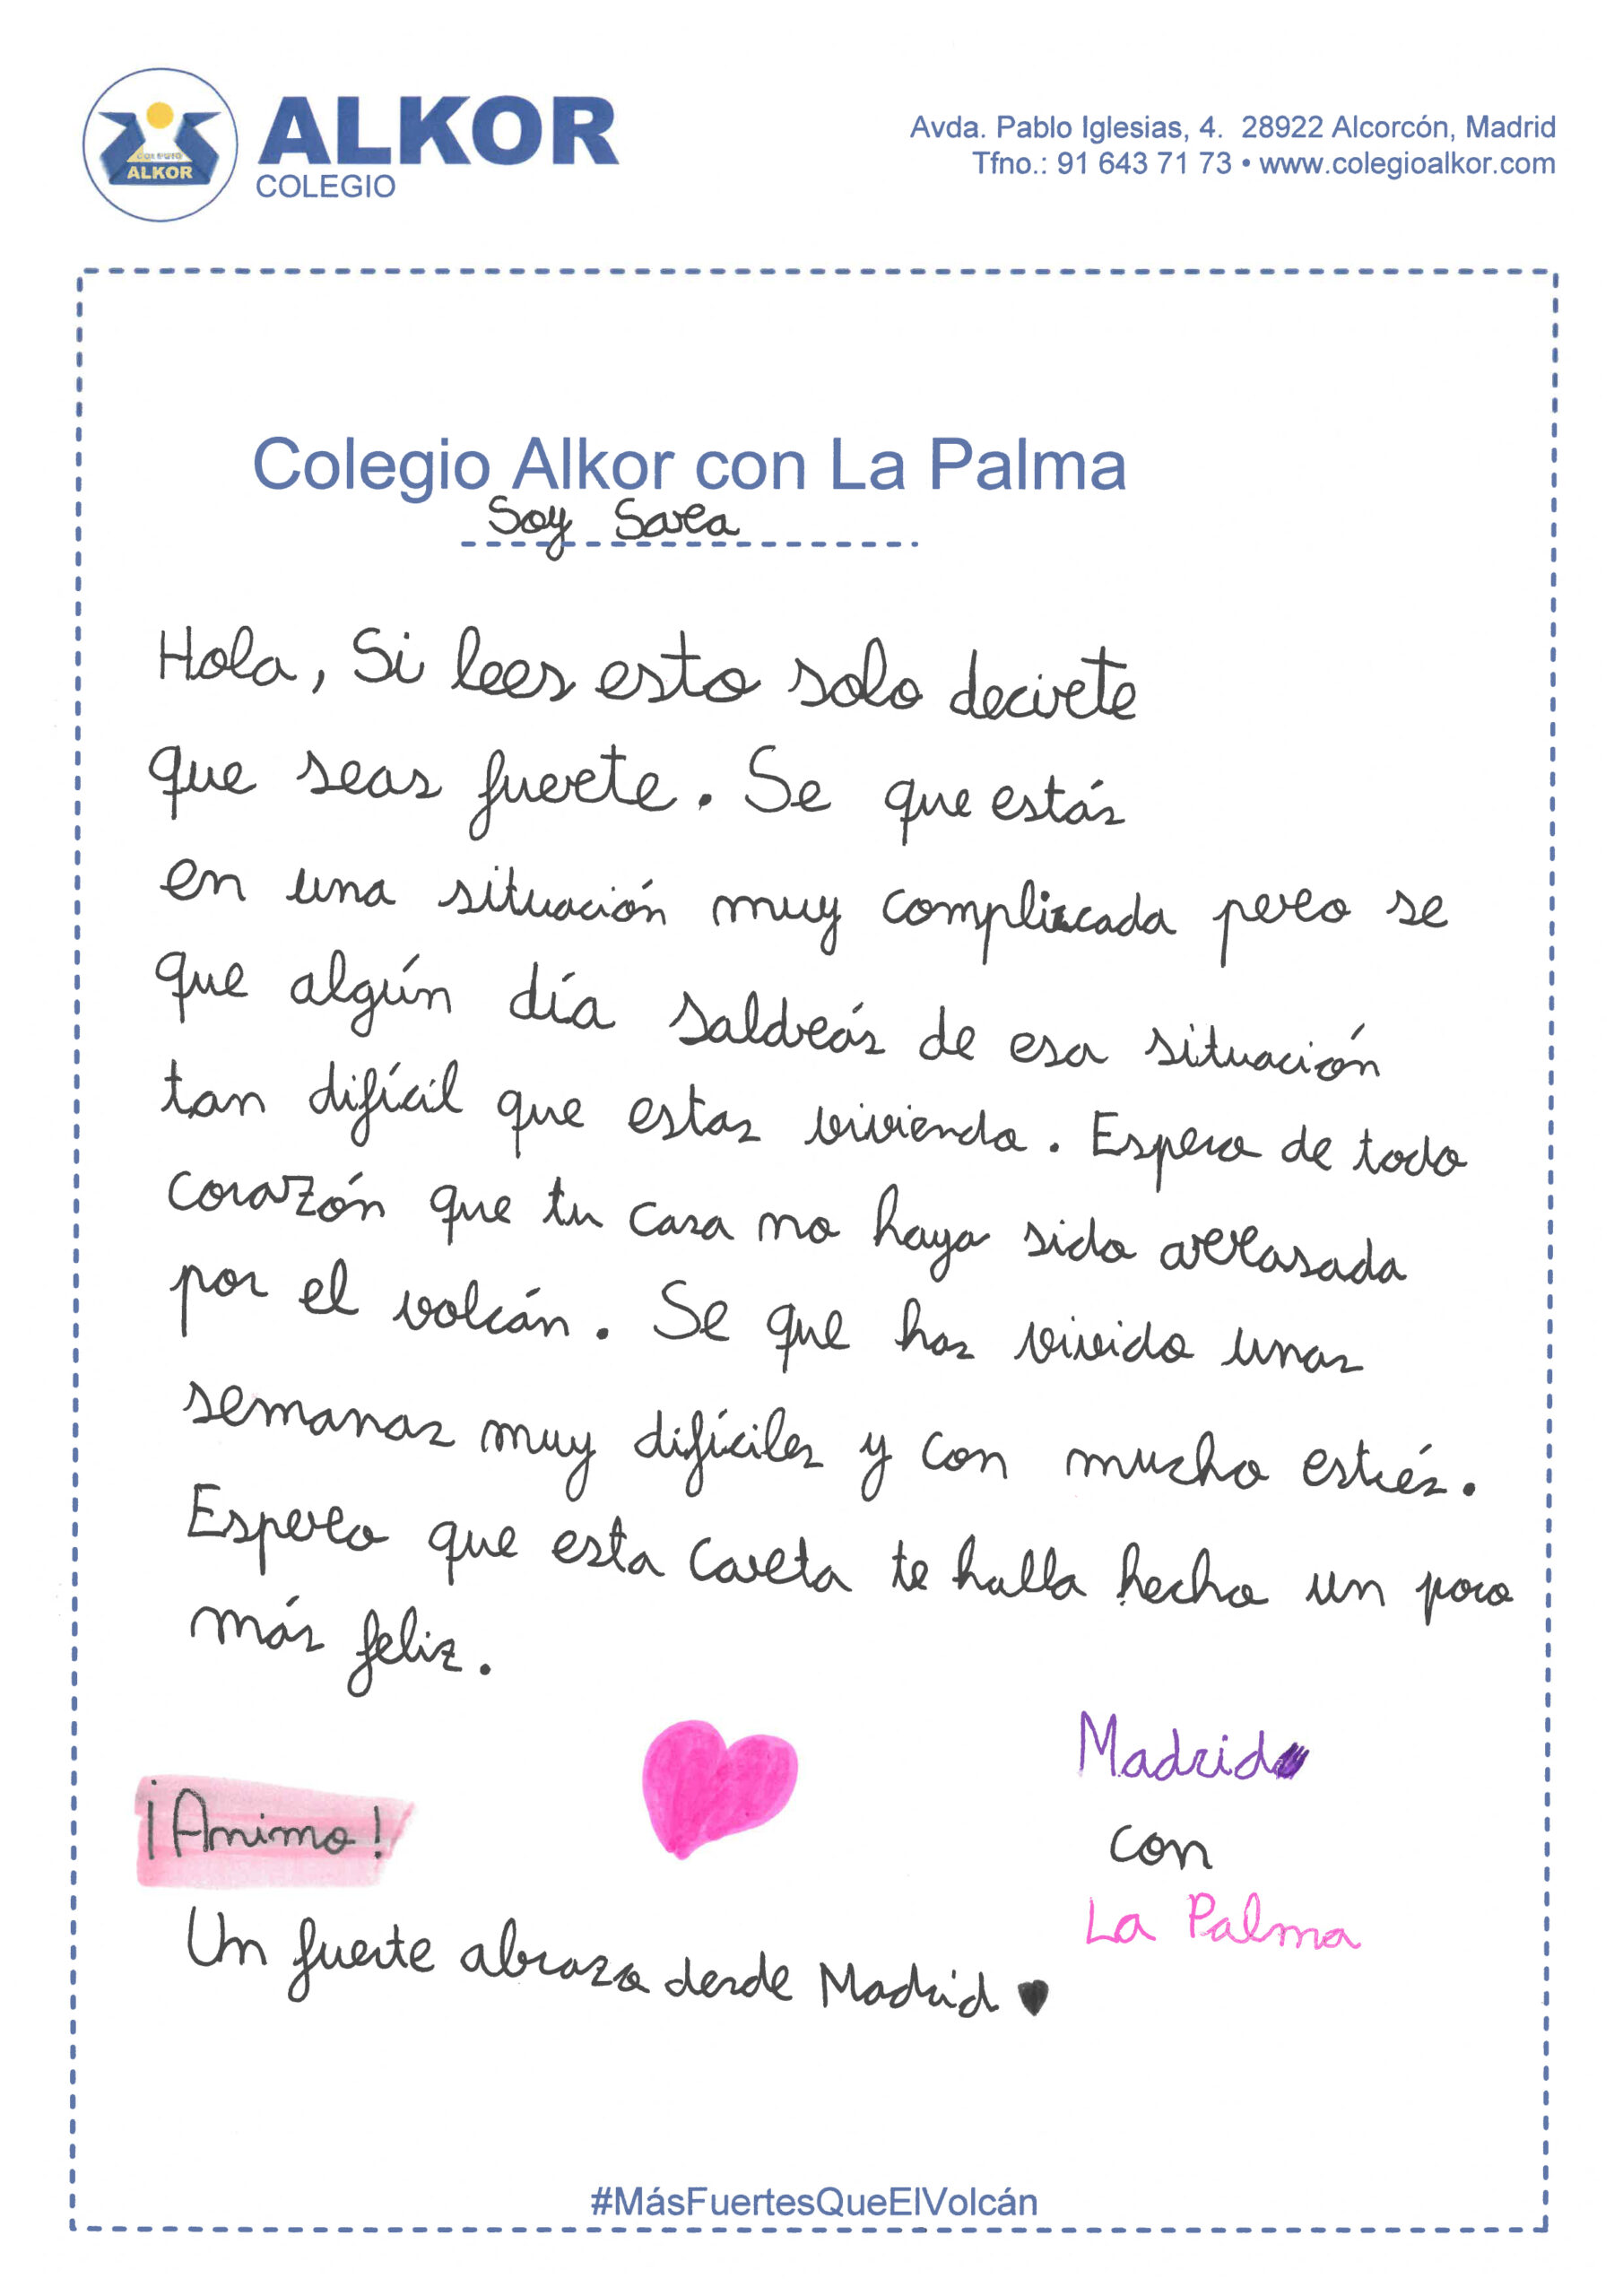 ALKOR
COLEGIO
COLEGIO
ALKOR
Avda. Pablo Iglesias, 4. 28922 Alcorcón, Madrid
Tfno.: 91 643 71 73 • www.colegioalkor.com
Colegio Alkor con La Palma
Soy Sara
Hola, Si lees esto solo decirte
que seas fuerte. Se que estás
en una situación muy complicada pero se
que algún día saldrás de esa situación
tan difícil que estas viviendo. Espero de todo
corazón que tu casa no haya sido arrasada
por el volcán. Se que has vivido unas
semanas muy difíciles y con mucho estrés.
Espero que esta carta te halla hecho un poco
más feliz.
¡Animo!
Madrid
con
La Palma
Un fuerte abrazo desde Madrid ♥
#MásFuertesQueElVolcán